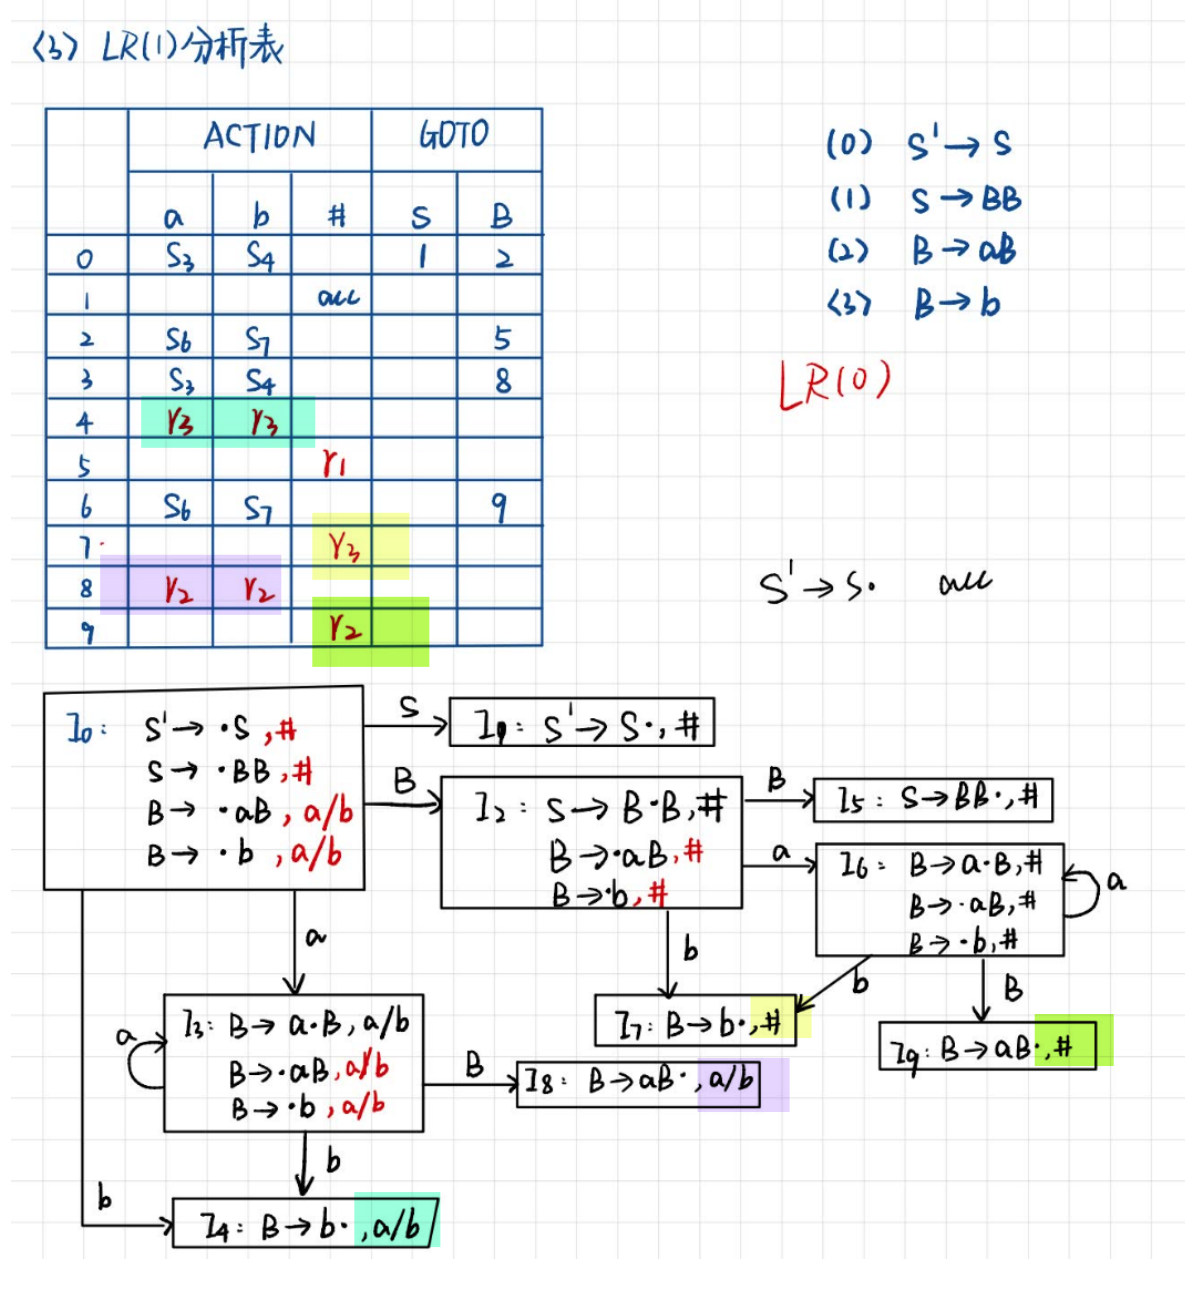 (3) LR(1)分析表
ACTION GOTO
a b # S B
0 S3 S4 1 2
1 acc
2 S6 S7 5
3 S3 S4 8
4 r3 r3
5 r1
6 S6 S7 9
7 r3
8 r2 r2
9 r2
(0) S'→S
(1) S→BB
(2) B→aB
(3) B→b
LR(0)
S'→S· acc
I0: S'→·S,#
S→·BB,#
B→·aB,a/b
B→·b,a/b
S
I1: S'→S·,#
B
I2: S→B·B,#
B→·aB,#
B→·b,#
B
I5: S→BB·,#
a
I6: B→a·B,#
B→·aB,#
B→·b,#
a
a
b
b
B
I3: B→a·B,a/b
B→·aB,a/b
B→·b,a/b
a
I7: B→b·,#
I9: B→aB·,#
B
I8: B→aB·,a/b
b
b
I4: B→b·,a/b